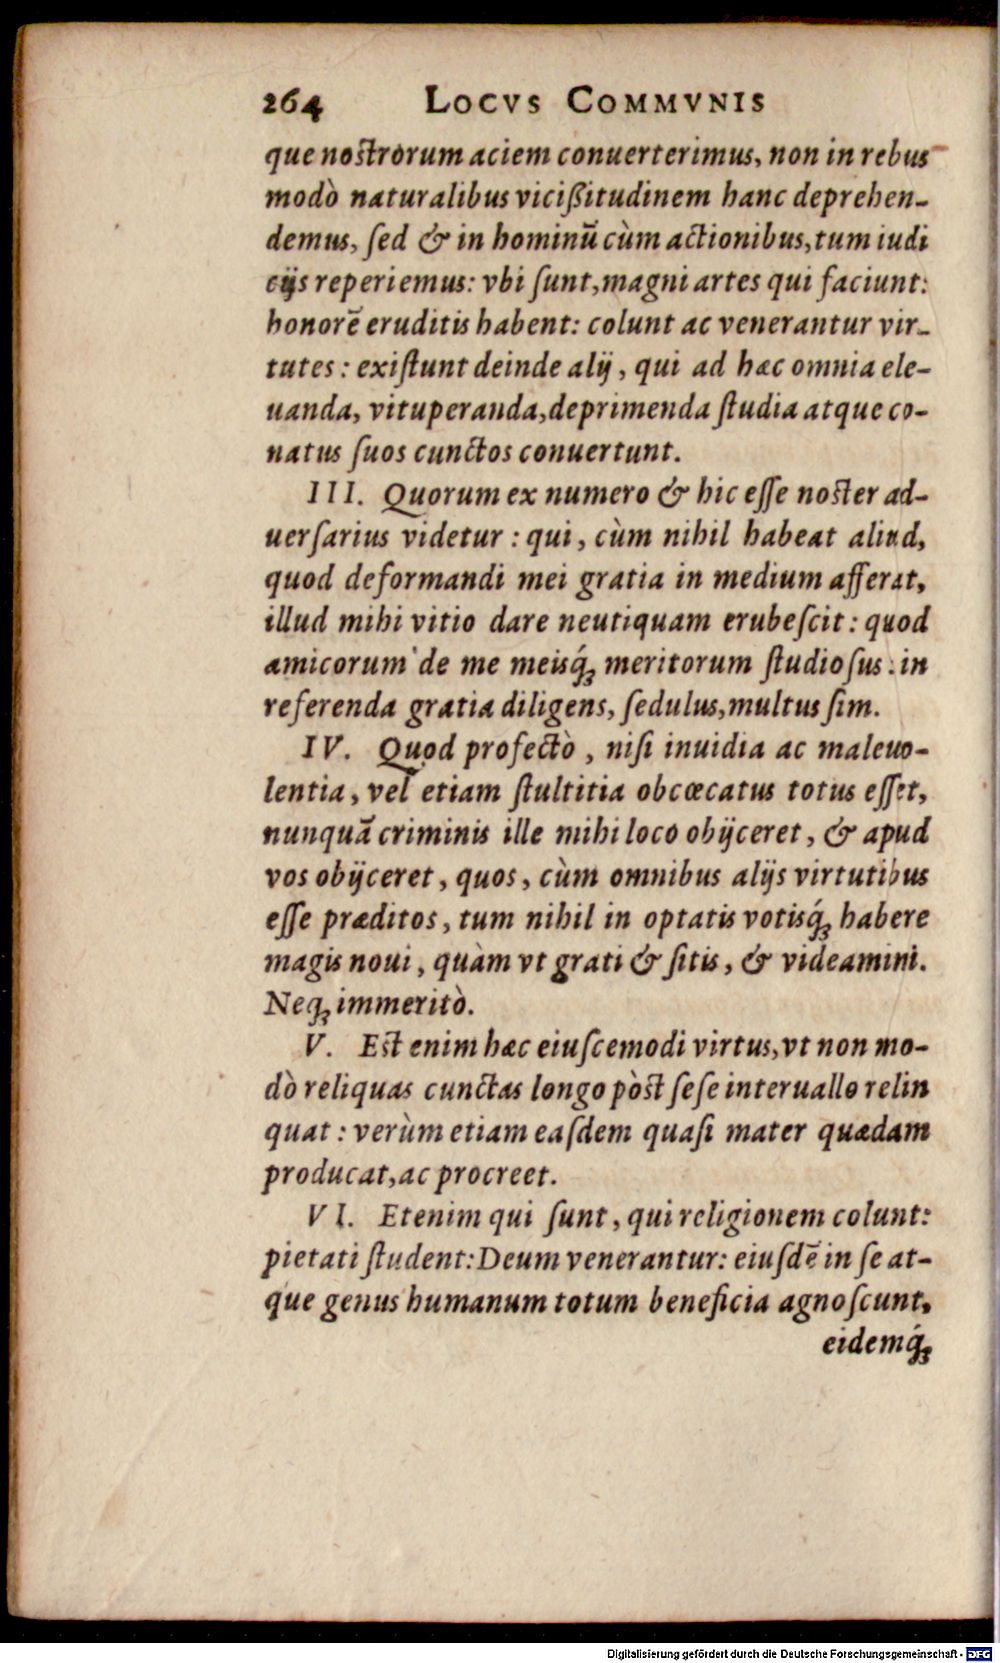 264 LOCVS COMMVNIS
que nostrorum aciem conuerterimus, non in rebus
modò naturalibus vicißitudinem hanc deprehen-
demus, ſed & in hominū cùm actionibus, tum iudi
cijs reperiemus: vbi ſunt, magni artes qui faciunt:
honorē eruditis habent: colunt ac venerantur vir-
tutes: exiſtunt deinde alij, qui ad hæc omnia ele-
uanda, vituperanda, deprimenda ſtudia atque co-
natus ſuos cunctos conuertunt.
III. Quorum ex numero & hic eſſe noster ad-
uerſarius videtur: qui, cùm nihil habeat aliud,
quod deformandi mei gratia in medium afferat,
illud mihi vitio dare neutiquam erubeſcit: quod
amicorum de me meisq́ꝫ meritorum ſtudioſus: in
referenda gratia diligens, ſedulus, multus ſim.
IV. Quod profectò, niſi inuidia ac maleuo-
lentia, vel etiam ſtultitia obcœcatus totus eſſet,
nunquā criminis ille mihi loco obijceret, & apud
vos obijceret, quos, cùm omnibus alijs virtutibus
eſſe præditos, tum nihil in optatis votisq́ꝫ habere
magis noui, quàm vt grati & ſitis, & videamini.
Neqꝫ immeritò.
V. Est enim hæc eiuſcemodi virtus, vt non mo-
dò reliquas cunctas longo pòst ſeſe interuallo relin
quat: verùm etiam eaſdem quaſi mater quædam
producat, ac procreet.
VI. Etenim qui ſunt, qui religionem colunt:
pietati ſtudent: Deum venerantur: eiuſdē in ſe at-
que genus humanum totum beneficia agnoſcunt,
eidemq́ꝫ
Digitalisierung gefördert durch die Deutsche Forschungsgemeinschaft - DFG